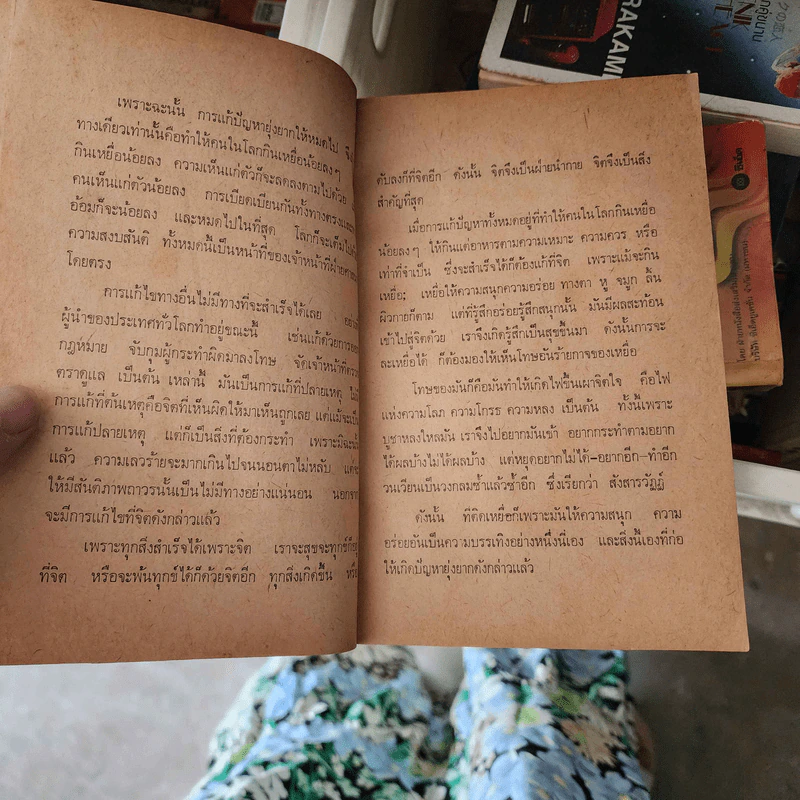 เพราะฉะนั้น การแก้ปัญหายุ่งยากให้หมดไป
ทางเดียวเท่านั้นคือทำให้คนในโลกกินเหยื่อน้อยลง ๆ
กินเหยื่อน้อยลง ความเห็นแก่ตัวก็จะลดลงตามไปด้วย
คนเห็นแก่ตัวน้อยลง การเบียดเบียนกันทั้งทางตรงและ
อ้อมก็จะน้อยลง และหมดไปในที่สุด โลกก็จะเต็มไป
ความสงบสันติ ทั้งหมดนี้เป็นหน้าที่ของเจ้าหน้าที่ฝ่าย
โดยตรง
การแก้ไขทางอื่นไม่มีทางที่จะสำเร็จได้เลย
ผู้นำของประเทศทั่วโลกทำอยู่ขณะนี้ เช่นแก้ด้วยการ
กฎหมาย จับกุมผู้กระทำผิดมาลงโทษ จัดเจ้าหน้าที่
ตราดูแล เป็นต้น เหล่านี้ มันเป็นการแก้ที่ปลายเหตุ
การแก้ที่ต้นเหตุคือจิตที่เห็นผิดให้มาเห็นถูกเลย แต่แม้จะเป็น
การแก้ปลายเหตุ แต่ก็เป็นสิ่งที่ต้องกระทำ เพราะมิฉะนั้น
แล้ว ความเลวร้ายจะมากเกินไปจนนอนตาไม่หลับ
ให้มีสันติภาพถาวรนั้นเป็นไม่มีทางอย่างแน่นอน
จะมีการแก้ไขที่จิตดังกล่าวแล้ว
เพราะทุกสิ่งสำเร็จได้เพราะจิต เราจะสุขจะทุกข์ก็
ที่จิต หรือจะพ้นทุกข์ได้ก็ด้วยจิตอีก ทุกสิ่งเกิดขึ้น
ดับลงก็ที่จิตอีก ดังนั้น จิตจึงเป็นฝ่ายนำกาย จิตจึงเป็นสิ่ง
สำคัญที่สุด
เมื่อการแก้ปัญหาทั้งหมดอยู่ที่ทำให้คนในโลกกินเหยื่อ
น้อยลง ๆ ให้กินแต่อาหารตามความเหมาะ ความควร หรือ
เท่าที่จำเป็น ซึ่งจะสำเร็จได้ก็ต้องแก้ที่จิต เพราะแม้จะกิน
เหยื่อ; เหยื่อให้ความสนุกความอร่อย ทางตา หู จมูก ลิ้น
ผิวกายก็ตาม แต่ที่รู้สึกอร่อยรู้สึกสนุกนั้น มันมีผลสะท้อน
เข้าไปสู่จิตด้วย เราจึงเกิดรู้สึกเป็นสุขขึ้นมา ดังนั้นการจะ
ละเหยื่อได้ ก็ต้องมองให้เห็นโทษอันร้ายกาจของเหยื่อ
โทษของมันก็คือมันทำให้เกิดไฟขึ้นเผาจิตใจ คือไฟ
แห่งความโลภ ความโกรธ ความหลง เป็นต้น ทั้งนี้เพราะ
บูชาหลงใหลมัน เราจึงไปอยากมันเข้า อยากกระทำตามอยาก
ได้ผลบ้างไม่ได้ผลบ้าง แต่หยุดอยากไม่ได้-อยากอีก-ทำอีก
วนเวียนเป็นวงกลมซ้ำแล้วซ้ำอีก ซึ่งเรียกว่า สังสารวัฏฏ์
ดังนั้น ที่ติดเหยื่อก็เพราะมันให้ความสนุก ความ
อร่อยอันเป็นความบรรเทิงอย่างหนึ่งนี่เอง และสิ่งนี้เองที่ก่อ
ให้เกิดปัญหายุ่งยากดังกล่าวแล้ว